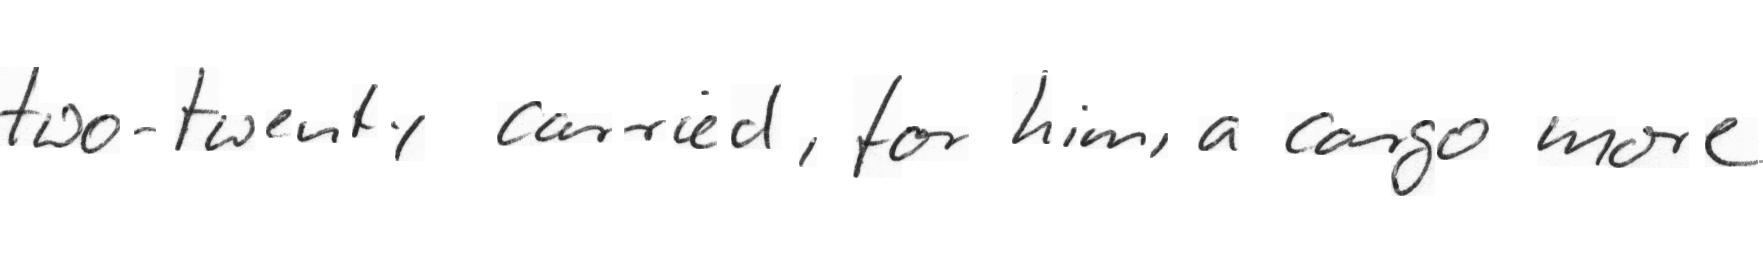 two-twenty carried, for him, a cargo more